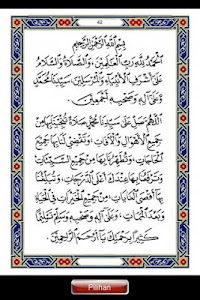 42
بِسْمِ اللهِ الرَّحْمٰنِ الرَّحِيْمِ
اَلْحَمْدُ لِلّٰهِ رَبِّ الْعَالَمِيْنَ، وَالصَّلَاةُ وَالسَّلَامُ
عَلَى اَشْرَفِ الْاَنْبِيَاءِ وَالْمُرْسَلِيْنَ سَيِّدِنَا مُحَمَّدٍ
وَعَلَى اٰلِهِ وَصَحْبِهِ اَجْمَعِيْنَ.
اَللّٰهُمَّ صَلِّ عَلَى سَيِّدِنَا مُحَمَّدٍ صَلَاةً تُنْجِيْنَا بِهَا مِنْ
جَمِيْعِ الْاَهْوَالِ وَالْاٰفَاتِ، وَتَقْضِى لَنَا بِهَا جَمِيْعَ
الْحَاجَاتِ، وَتُطَهِّرُنَا بِهَا مِنْ جَمِيْعِ السَّيِّئَاتِ،
وَتَرْفَعُنَا بِهَا عِنْدَكَ اَعْلَى الدَّرَجَاتِ، وَتُبَلِّغُنَا
بِهَا اَقْصَى الْغَايَاتِ مِنْ جَمِيْعِ الْخَيْرَاتِ فِى الْحَيَاةِ
وَبَعْدَ الْمَمَاتِ، وَعَلَى اٰلِهِ وَصَحْبِهِ وَسَلِّمْ تَسْلِيْمًا
كَثِيْرًا بِرَحْمَتِكَ يَا اَرْحَمَ الرَّاحِمِيْنَ
Pilihan